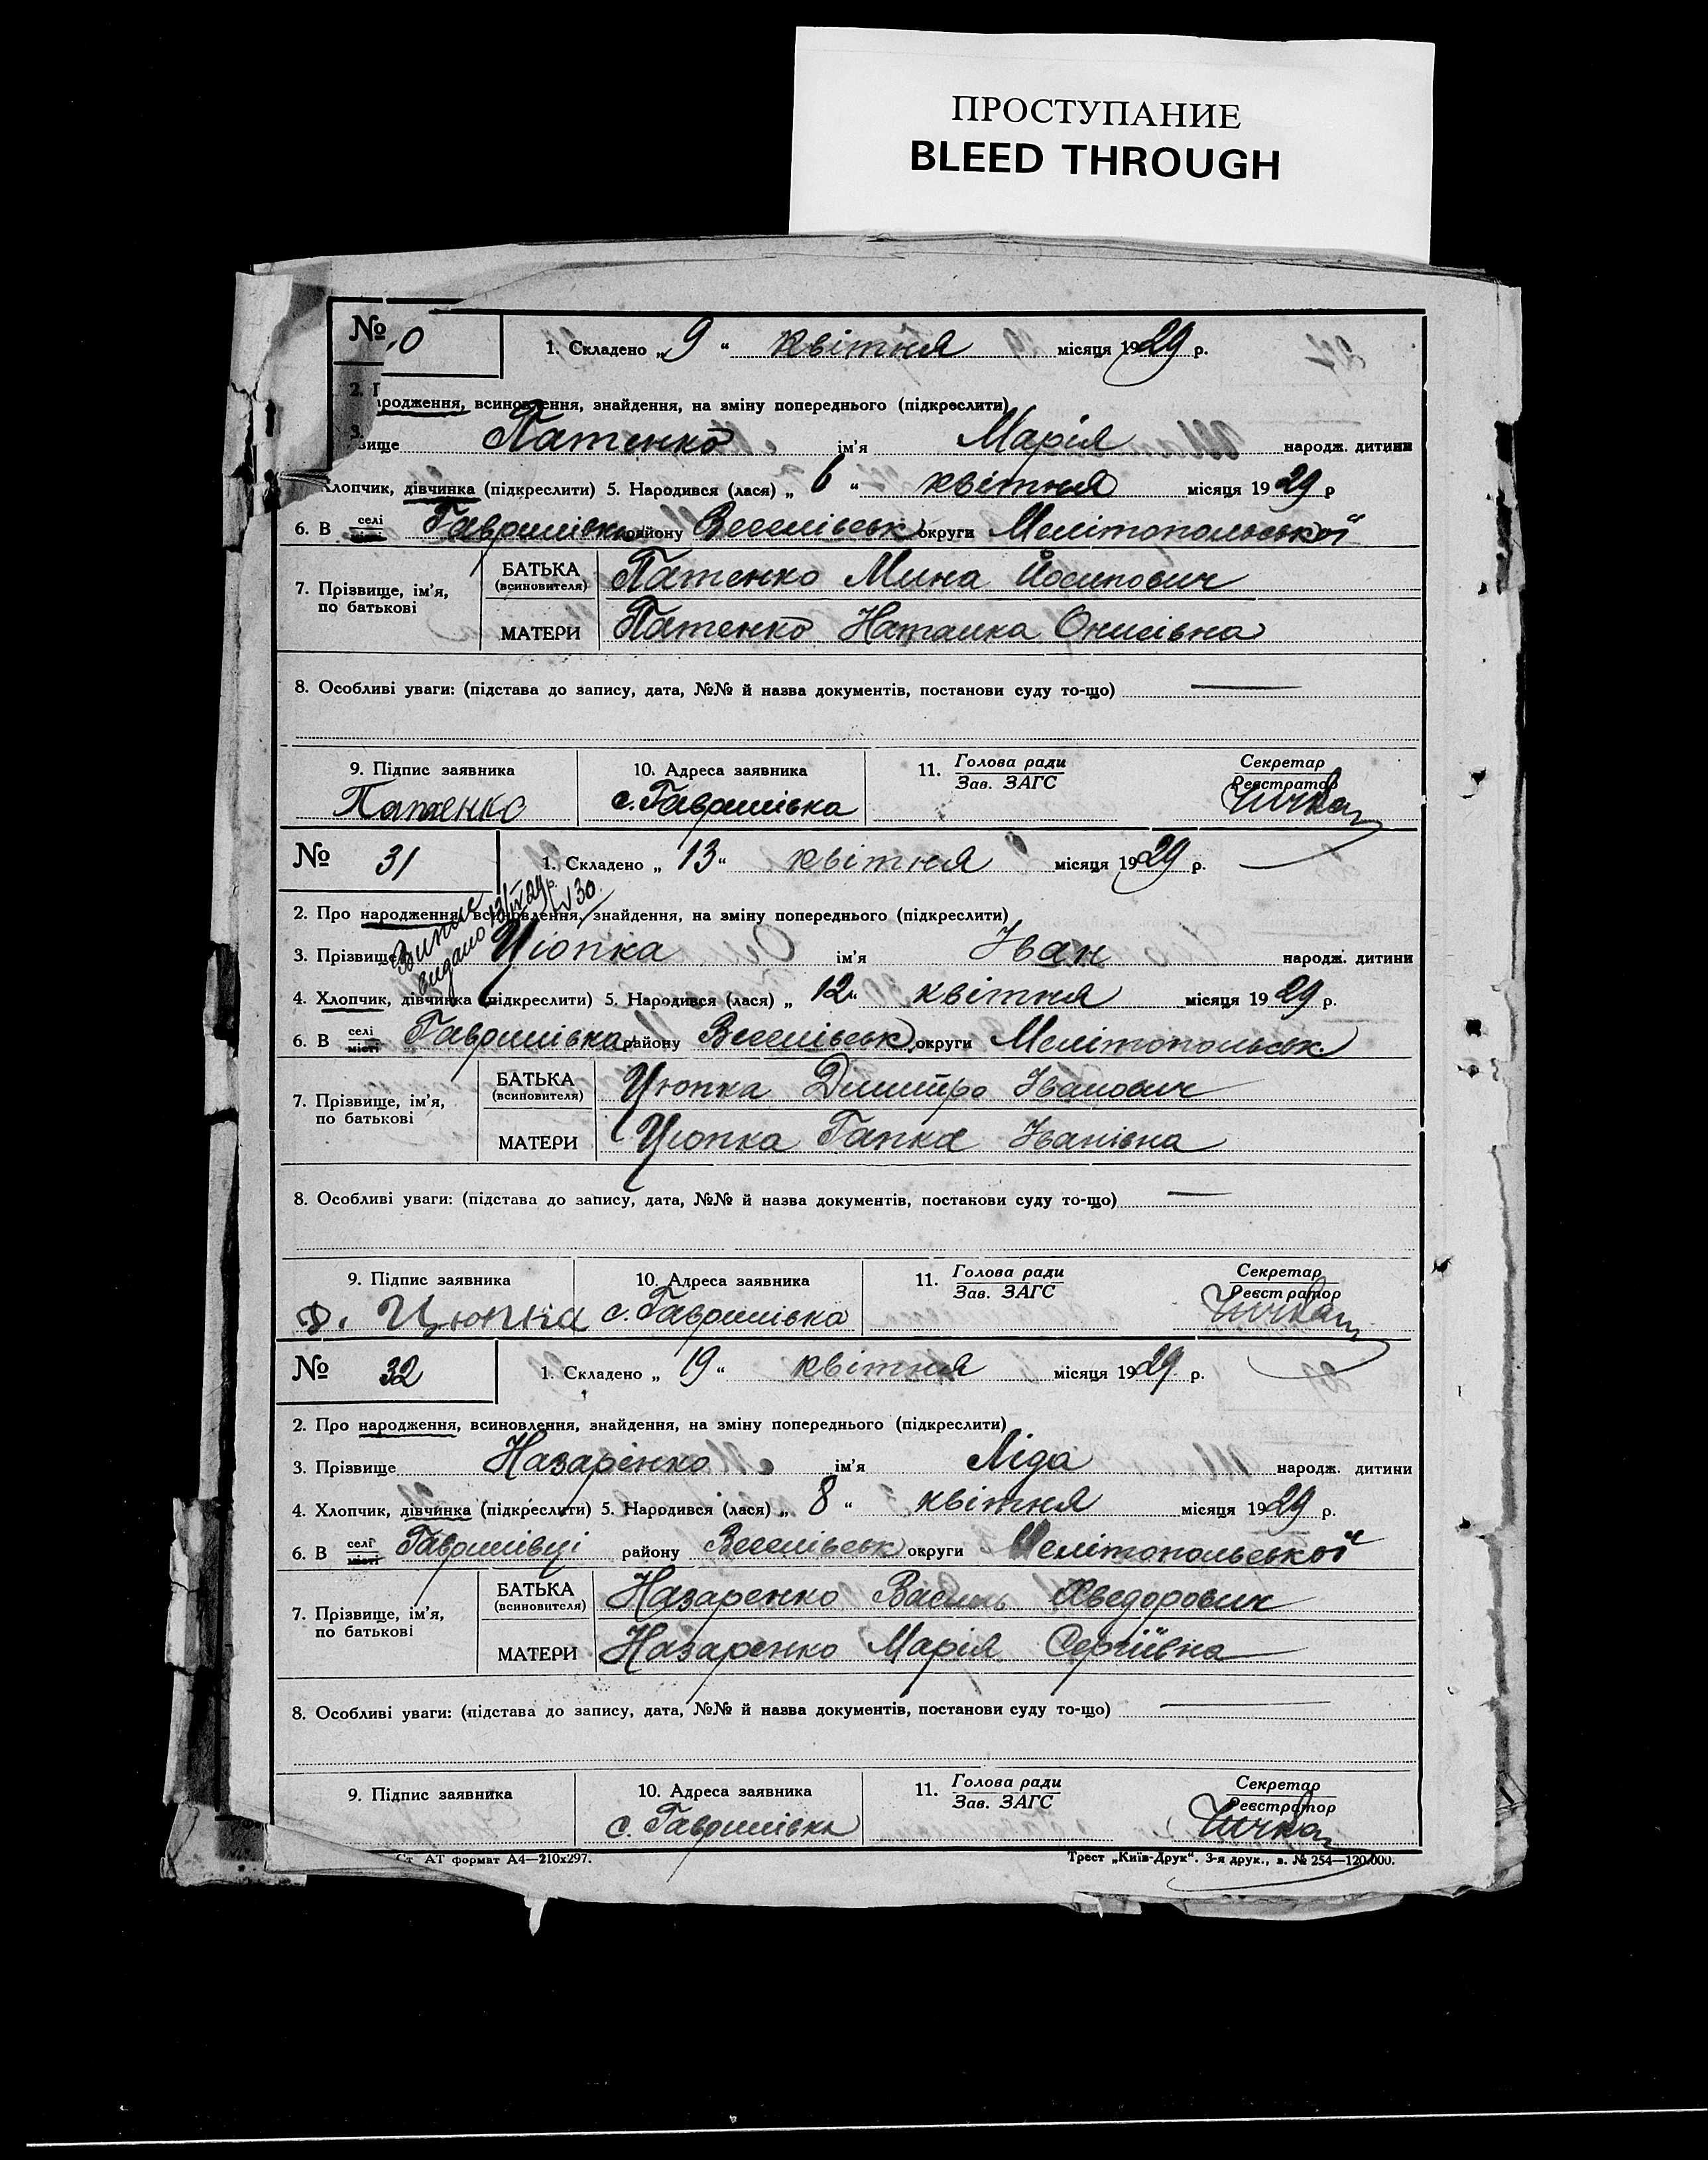 ПРОСТУПАНИЕ
BLEED THROUGH
№ 0 1. Складено „9“ квітня місяця 1929 р.
2. П
ародження, всиновлення, знайдення, на зміну попереднього (підкреслити)
3. звище Патенко ім'я Марія народж. дитини
Хлопчик, дівчинка (підкреслити) 5. Народився (лася) „6“ квітня місяця 1929 р
6. В селі Гаврилівка району Веселівськ округи Мелітопольської
7. Прізвище, ім'я, по батькові БАТЬКА (всиновителя) Патенко Мина Йосипович
МАТЕРИ Патенко Наталка Онисівна
8. Особливі уваги: (підстава до запису, дата, №№ й назва документів, постанови суду то-що) —
9. Підпис заявника 10. Адреса заявника 11. Голова ради Зав. ЗАГС Секретар Реєстратор
Патенко с. Гаврилівка
№ 31 1. Складено „13“ квітня місяця 1929 р.
Випис видано 13/IV 29 р. № 30.
2. Про народження, всиновлення, знайдення, на зміну попереднього (підкреслити)
3. Прізвище Цюпка ім'я Іван народж. дитини
4. Хлопчик, дівчинка (підкреслити) 5. Народився (лася) „12“ квітня місяця 1929 р.
6. В селі місті Гаврилівка району Веселівськ. округи Мелітопольськ.
7. Прізвище, ім'я, по батькові БАТЬКА (всиновителя) Цюпка Дмитро Іванович
МАТЕРИ Цюпка Гапка Іванівна
8. Особливі уваги: (підстава до запису, дата, №№ й назва документів, постанови суду то-що) —
9. Підпис заявника 10. Адреса заявника 11. Голова ради Зав. ЗАГС Секретар Реєстратор
Д. Цюпка с. Гаврилівка
№ 32 1. Складено „19“ квітня місяця 1929 р.
2. Про народження, всиновлення, знайдення, на зміну попереднього (підкреслити)
3. Прізвище Назаренко ім'я Ліда народж. дитини
4. Хлопчик, дівчинка (підкреслити) 5. Народився (лася) „8“ квітня місяця 1929 р.
6. В селі місті Гаврилівці району Веселівськ округи Мелітопольської
7. Прізвище, ім'я, по батькові БАТЬКА (всиновителя) Назаренко Василь Хведорович
МАТЕРИ Назаренко Марія Сергіївна
8. Особливі уваги: (підстава до запису, дата, №№ й назва документів, постанови суду то-що) —
9. Підпис заявника 10. Адреса заявника 11. Голова ради Зав. ЗАГС Секретар Реєстратор
с. Гаврилівка
Ст. АТ формат А4—210х297. Трест „Київ-Друк“. 3-я друк., з. № 254—120.000.